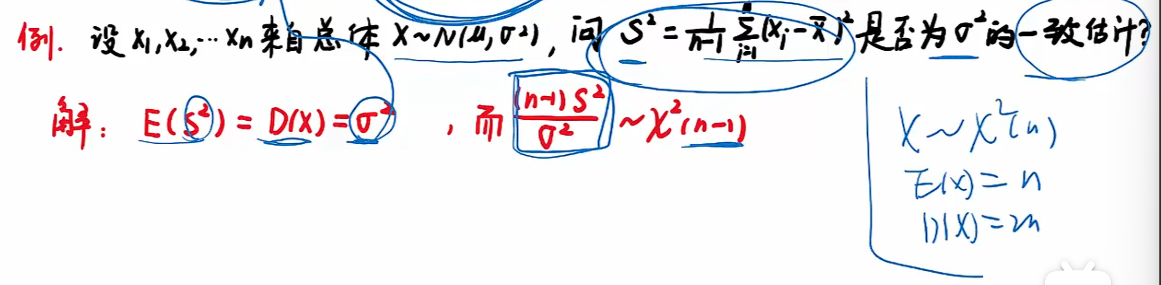 例. 设 X₁,X₂,⋯Xn 来自总体 X~N(μ,σ²), 问 S²=1/(n-1) Σ(i=1..n)(Xi-X̄)² 是否为σ²的一致估计?
解: E(S²)=D(X)=σ² , 而 (n-1)S²/σ² ~χ²(n-1)
X~χ²(n)
E(X)=n
D(X)=2n